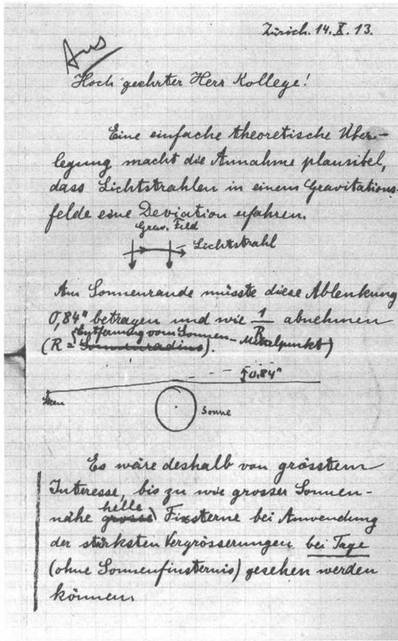 Zürich. 14. X. 13.
Hoch geehrter Herr Kollege!
Eine einfache theoretische Über-
legung macht die Annahme plausibel,
dass Lichtstrahlen in einem Gravitations-
felde eine Deviation erfahren.
Grav. Feld
Lichtstrahl
Am Sonnenrande müsste diese Ablenkung
0,84" betragen und wie 1/R abnehmen
(R = Sonnenradius).
Entfernung vom Sonnen-Mittelpunkt)
0.84"
Stern
Sonne
Es wäre deshalb von grösstem
Interesse, bis zu wie grosser Sonnen-
nähe grosse helle Fixsterne bei Anwendung
der stärksten Vergrösserungen bei Tage
(ohne Sonnenfinsternis) gesehen werden
können.